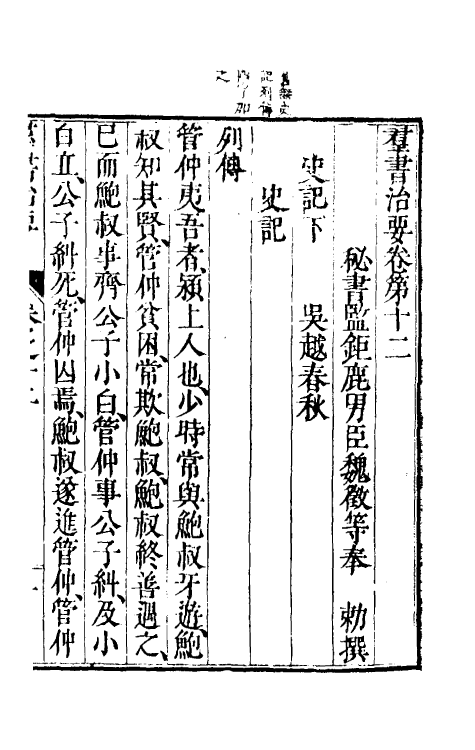 舊無史
記列傳
四字加
之
羣書治要卷第十二
秘書監鉅鹿男臣魏徵等奉 勅撰
史記下 吳越春秋
史記
列傳
管仲夷吾者、潁上人也、少時常與鮑叔牙遊、鮑
叔知其賢、管仲貧困、常欺鮑叔、鮑叔終善遇之、
已而鮑叔事齊公子小白、管仲事公子糾、及小
白立、公子糾死、管仲囚焉、鮑叔遂進管仲、管仲
羣書治要 卷之十二 一